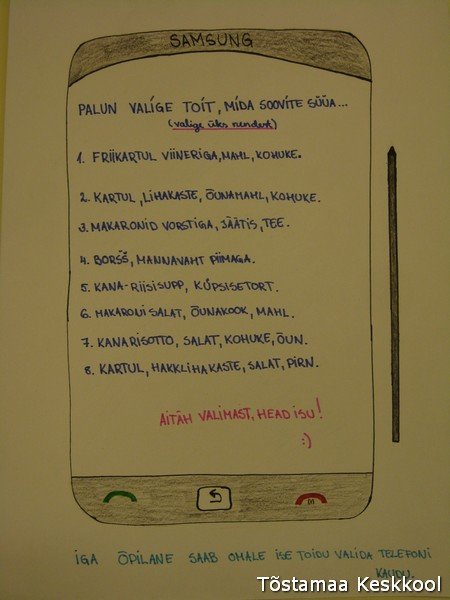 SAMSUNG
PALUN VALIGE TOIT, MIDA SOOVITE SÜÜA...
(valige üks nendest)
1. FRIIKARTUL VIINERIGA, MAHL, KOHUKE.
2. KARTUL, LIHAKASTE, ÕUNAMAHL, KOHUKE.
3. MAKARONID VORSTIGA, JÄÄTIS, TEE.
4. BORŠŠ, MANNAVAHT PIIMAGA.
5. KANA-RIISISUPP, KÜPSISETORT.
6. MAKARONISALAT, ÕUNAKOOK, MAHL.
7. KANARISOTTO, SALAT, KOHUKE, ÕUN.
8. KARTUL, HAKKLIHAKASTE, SALAT, PIRN.
AITÄH VALIMAST, HEAD ISU!
:)
IGA ÕPILANE SAAB OMALE ISE TOIDU VALIDA TELEFONI
KAUDU.
Tõstamaa Keskkool